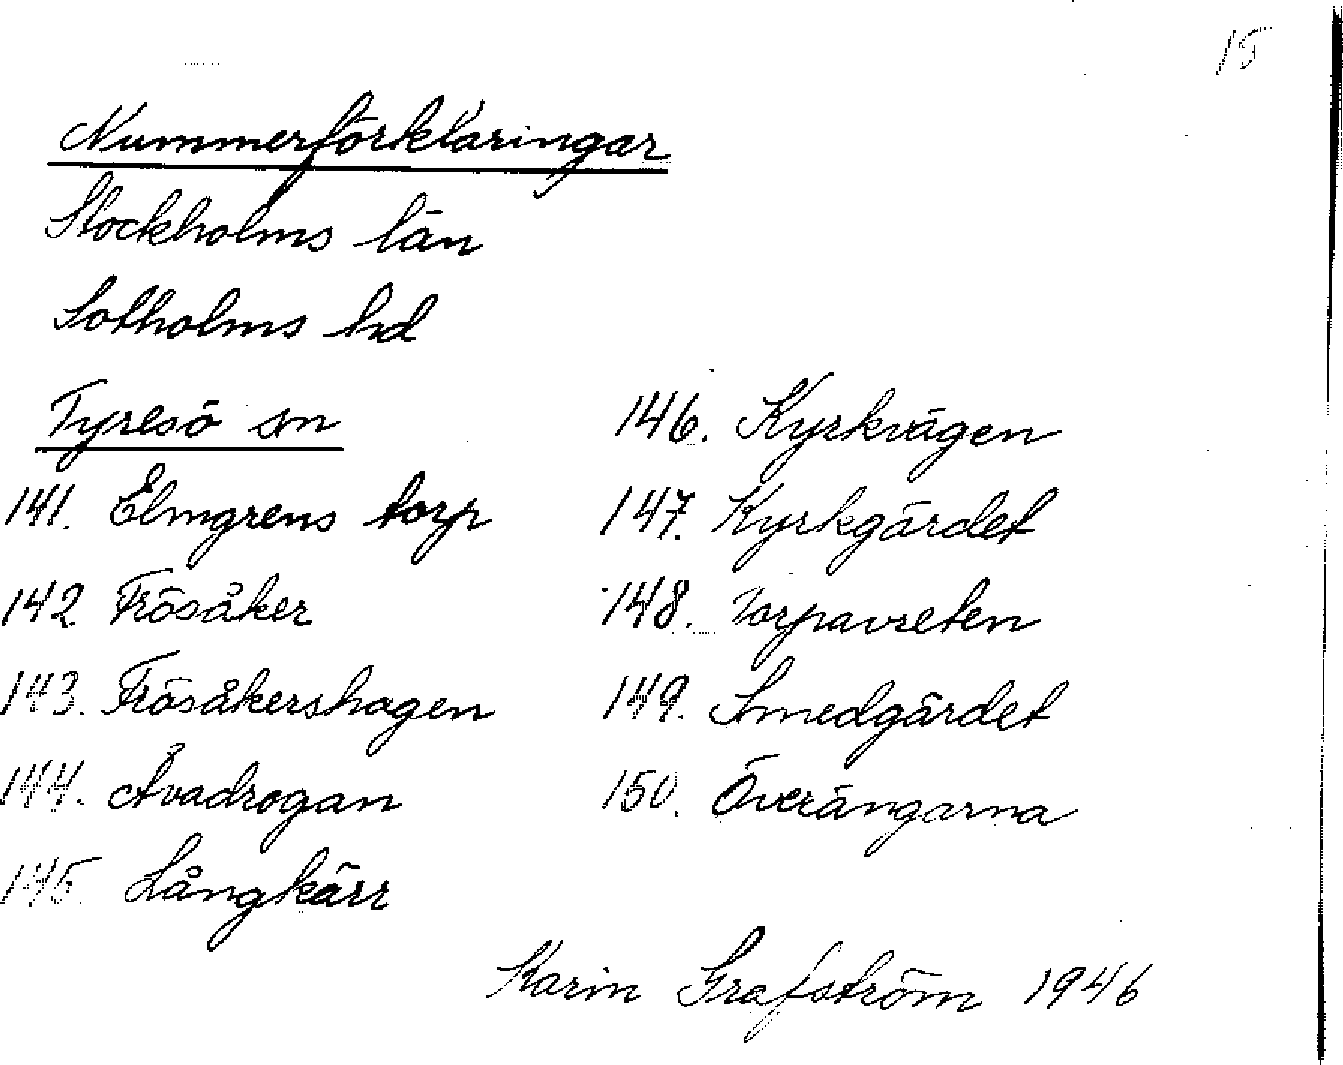 15
Nummerförklaringar
Stockholms län
Sotholms hd
Tyresö sn
141. Elmgrens torp
142 Frösåker
143. Frösåkershagen
144. Åvadrogan
145. Långkärr
146. Kyrkvägen
147. Kyrkgärdet
148. Torpavreten
149. Smedgärdet
150. Överängarna
Karin Grafström 1946